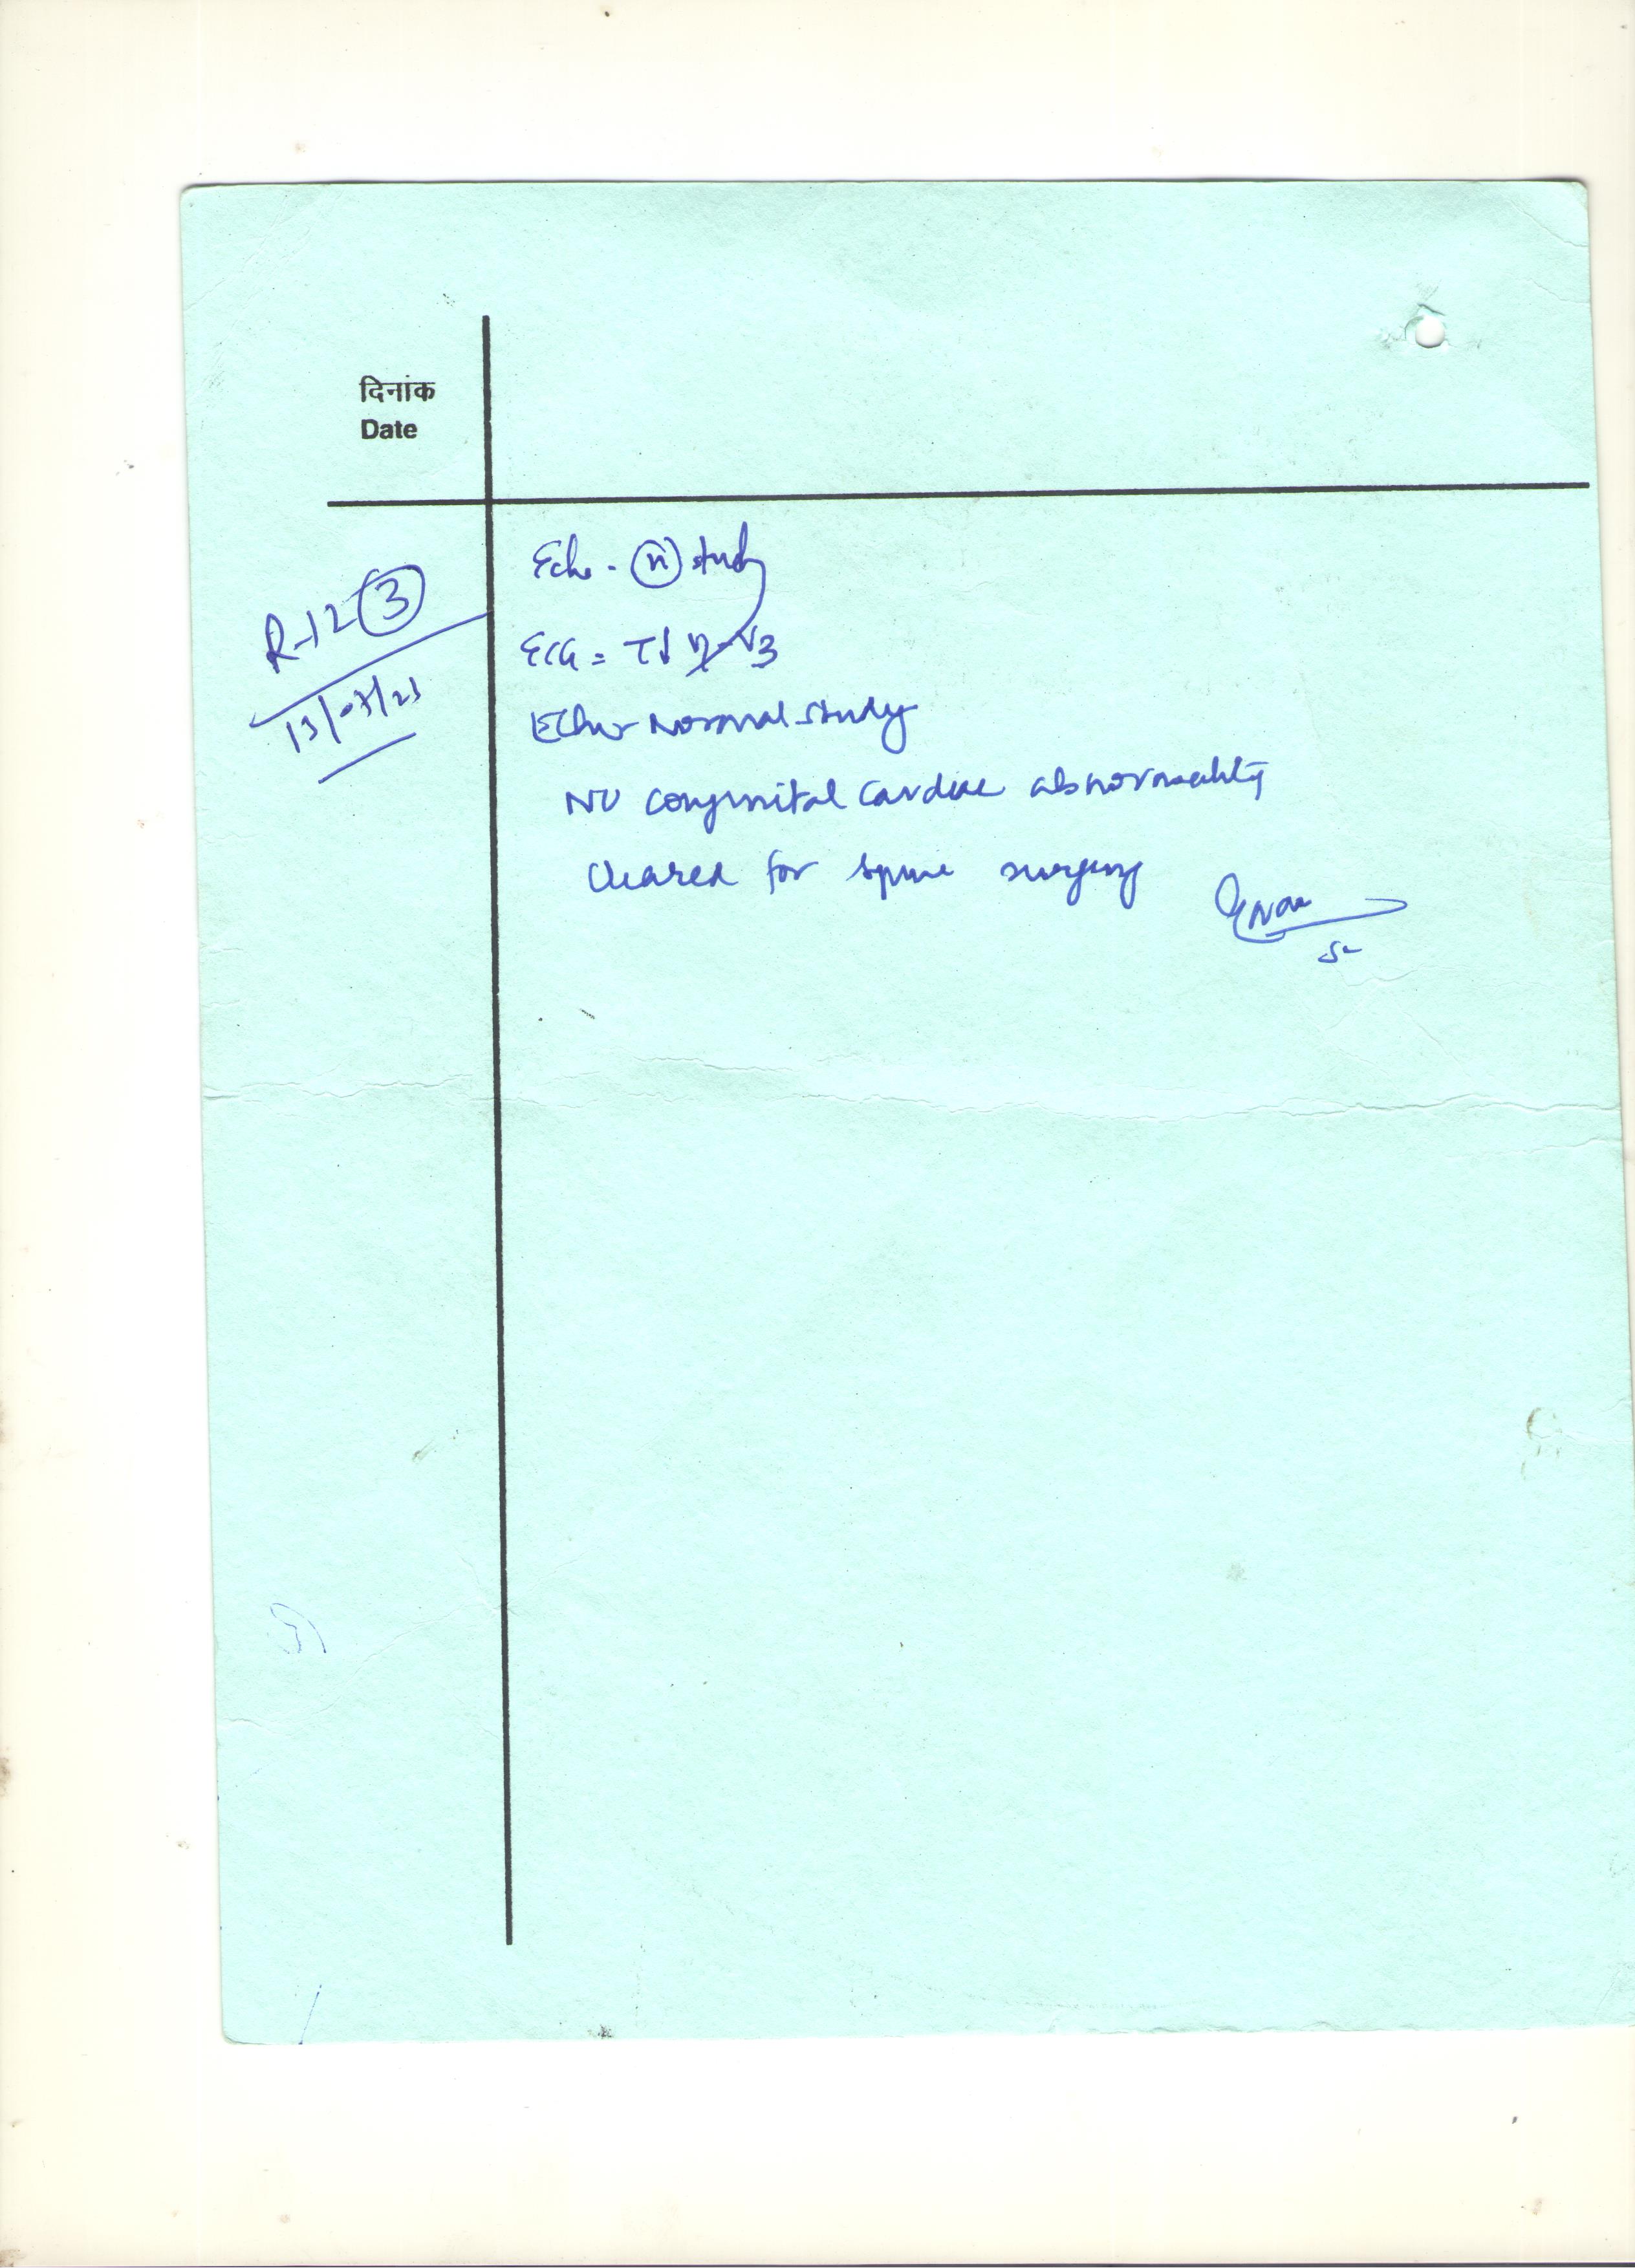 दिनांक
Date
R-12 3
13/07/23
Echo - n study
ECG = T↓ V3
Echo - Normal study
No congenital cardiac abnormality
Cleared for spine surgery